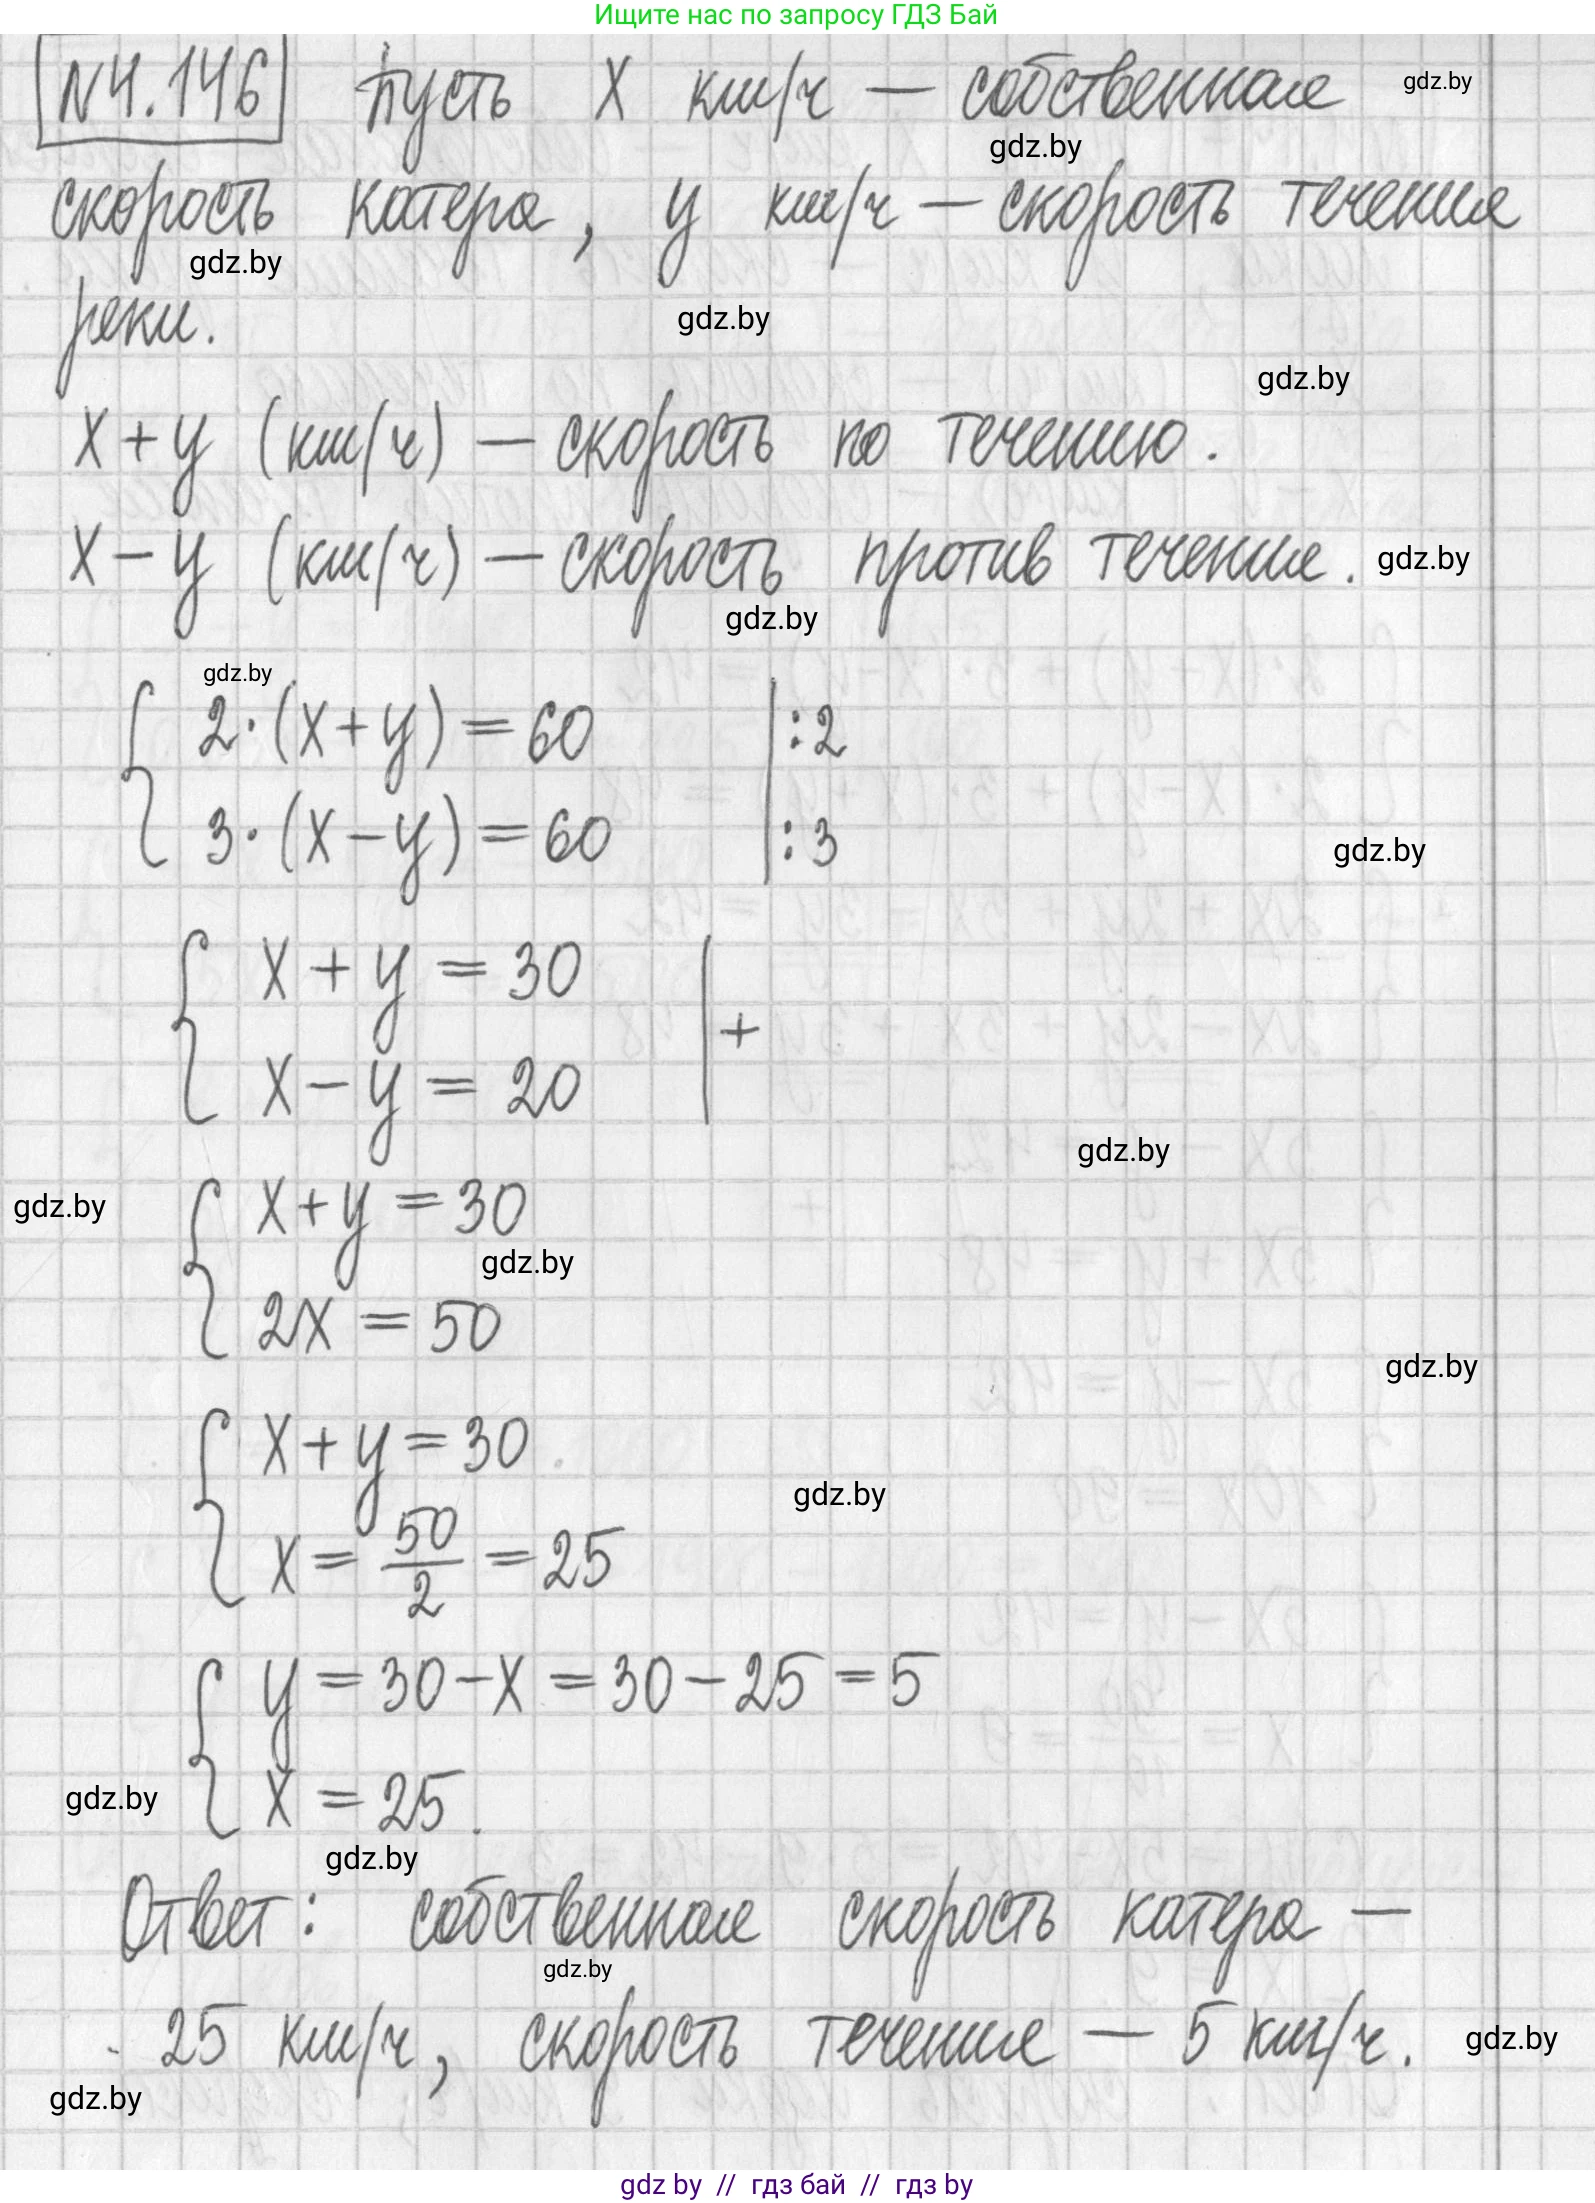 Ищите нас по запросу ГДЗ Бай
№4.146 Пусть x км/ч — собственная gdz.by
gdz.by
скорость катера, y км/ч — скорость течения
gdz.by
реки.
gdz.by
gdz.by
x + y (км/ч) — скорость по течению.
x - y (км/ч) — скорость против течения. gdz.by
gdz.by
gdz.by
2·(x+y) = 60 | :2
3·(x-y) = 60 | :3
gdz.by
x + y = 30
| +
x - y = 20
gdz.by
gdz.by
x+y = 30
gdz.by
2x = 50
gdz.by
x+y = 30
gdz.by
x = 50/2 = 25
y = 30 - x = 30 - 25 = 5
x = 25.
gdz.by
gdz.by
Ответ: собственная скорость катера —
gdz.by
- 25 км/ч, скорость течения — 5 км/ч.
gdz.by
gdz.by
gdz by // гдз бай // гдз by